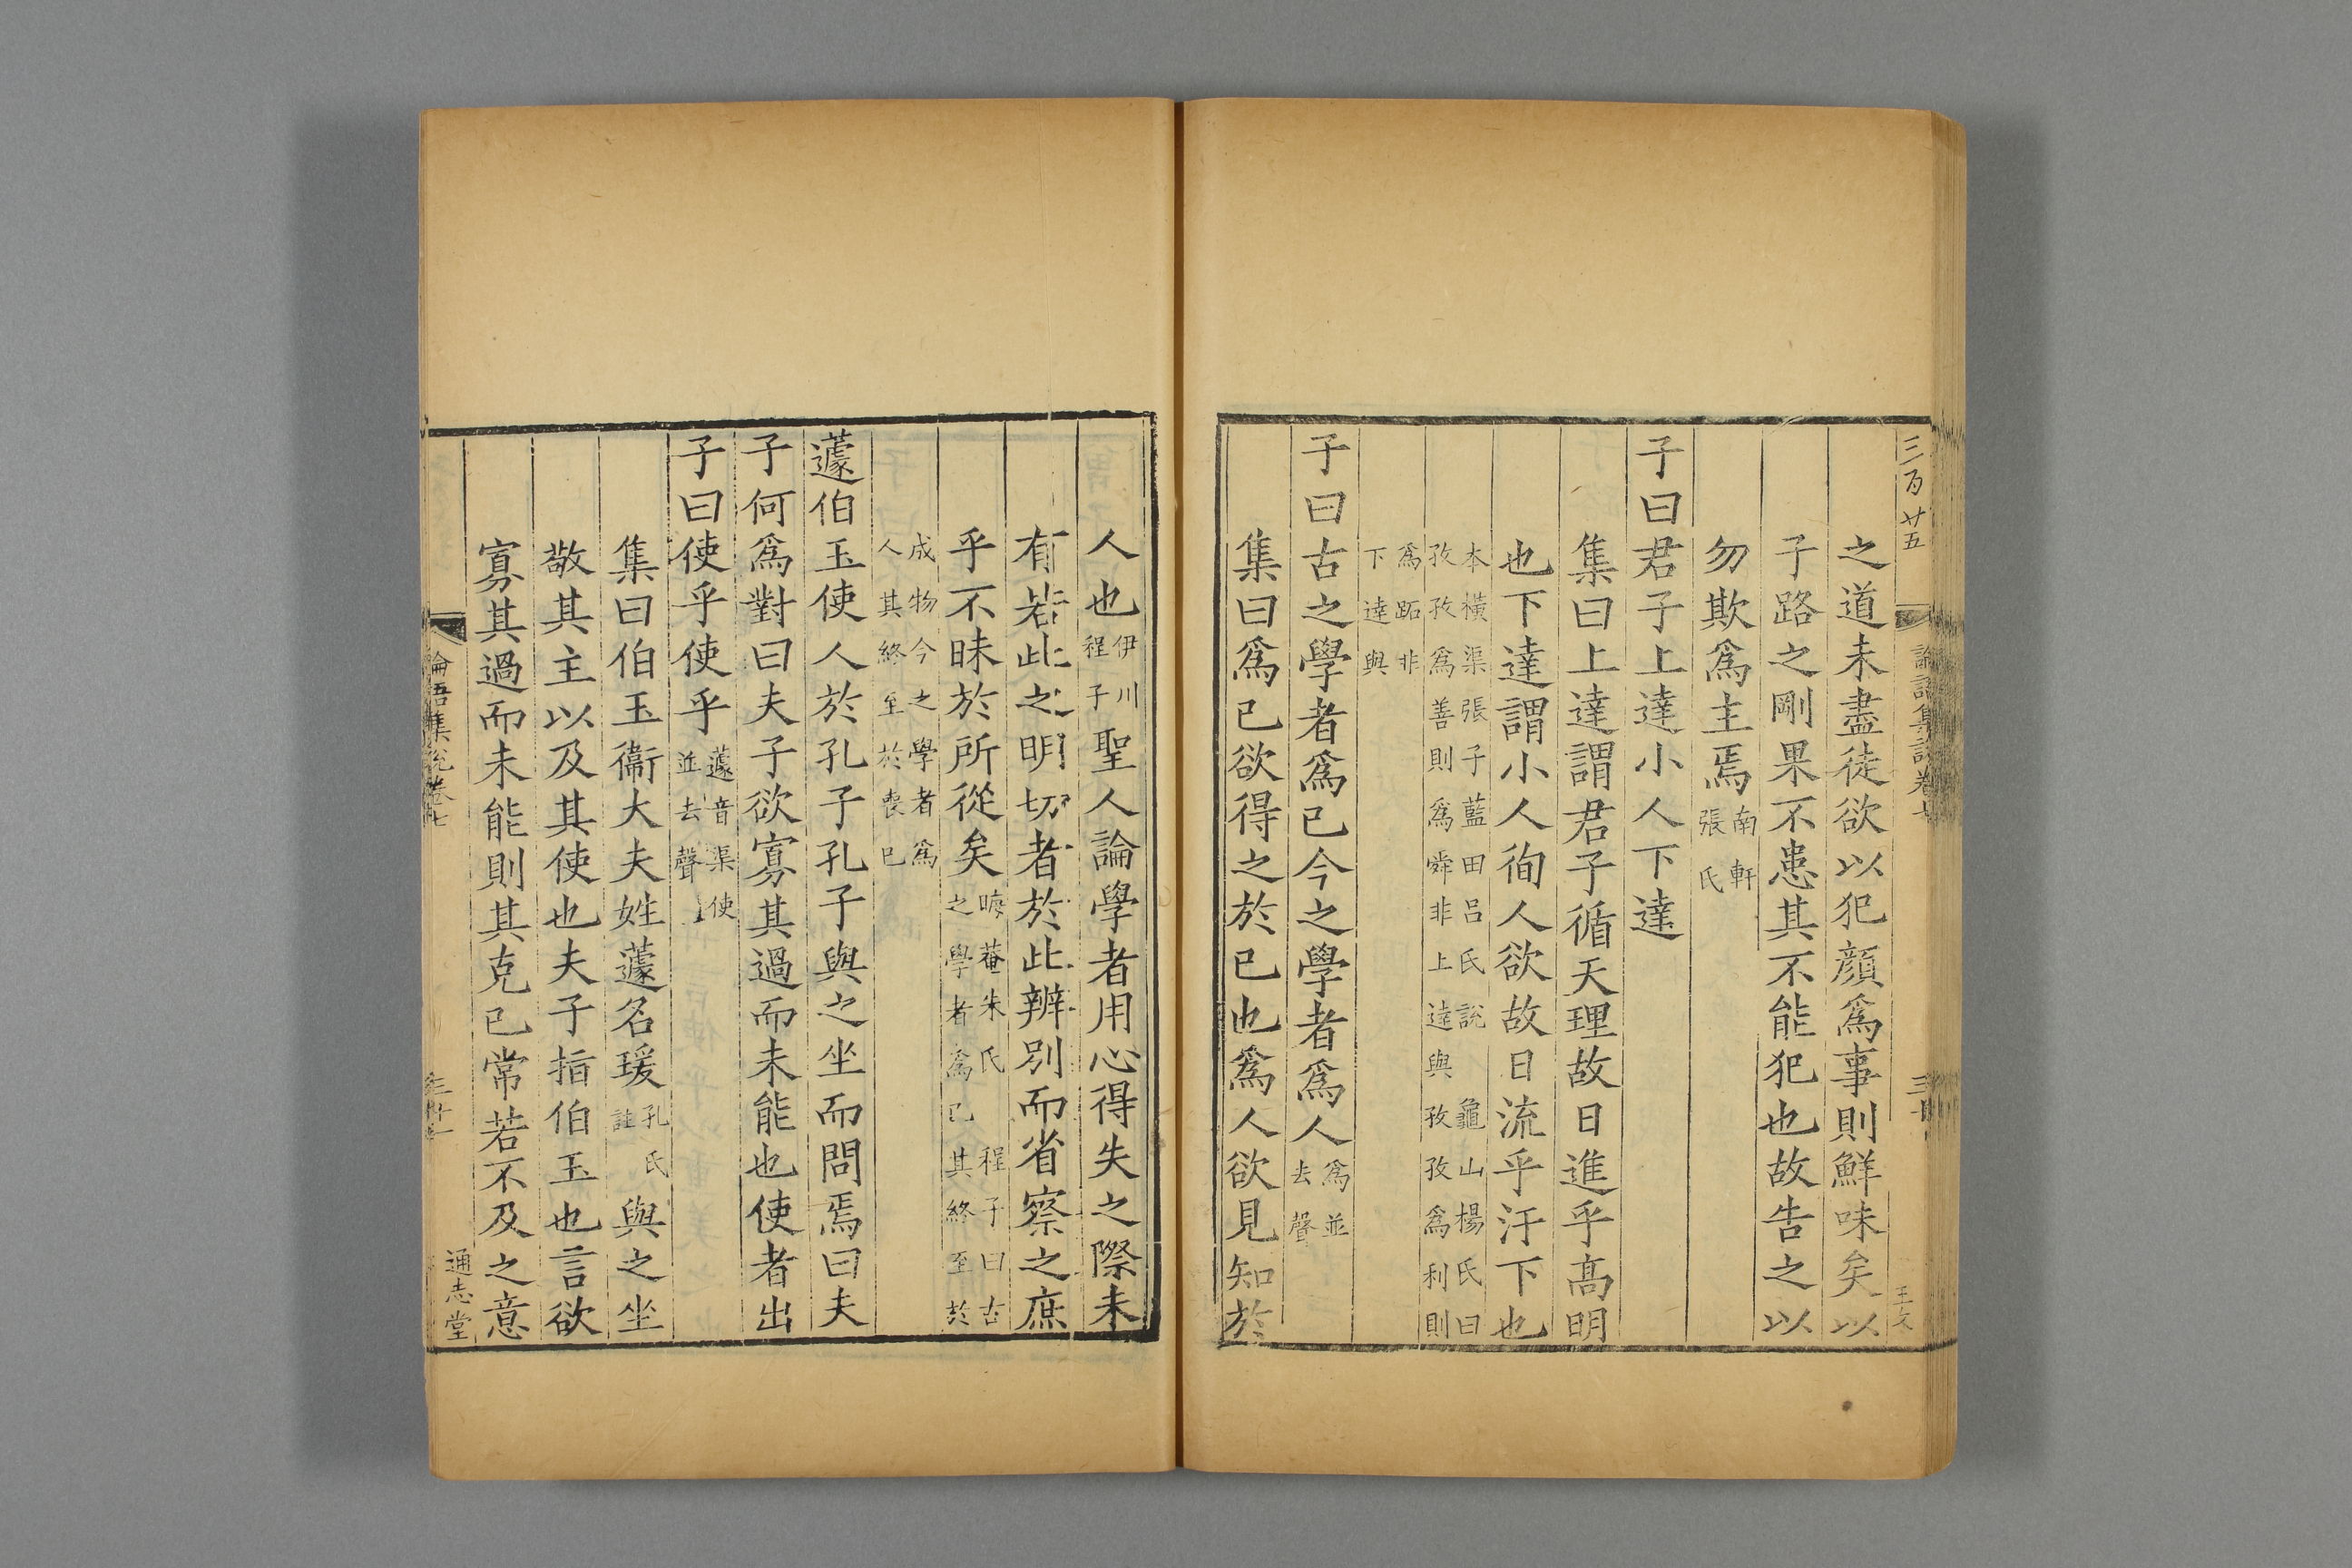 三百廿五
論語集說卷七
三十
之道未盡徒欲以犯顔爲事則鮮味矣以
子路之剛果不患其不能犯也故告之以
勿欺爲主焉南軒張氏
子曰君子上達小人下達
集曰上達謂君子循天理故日進乎髙明
也下達謂小人徇人欲故日流乎汙下也
本橫渠張子藍田吕氏說 龜山楊氏曰
孜孜爲善則爲舜非上達與孜孜爲利則
爲跖非
下達與
子曰古之學者爲已今之學者爲人爲並去聲
集曰爲已欲得之於已也爲人欲見知於
人也伊川程子聖人論學者用心得失之際未
有若此之明切者於此辨别而省察之庶
乎不昧於所從矣晦菴朱氏 程子曰古之學者爲已其終至於
成物今之學者爲
人其終至於喪已
蘧伯玉使人於孔子孔子與之坐而問焉曰夫
子何爲對曰夫子欲寡其過而未能也使者出
子曰使乎使乎蘧音渠使並去聲
集曰伯玉衞大夫姓蘧名瑗孔氏註與之坐
敬其主以及其使也夫子指伯玉也言欲
寡其過而未能則其克已常若不及之意
論語集說卷七
通志堂